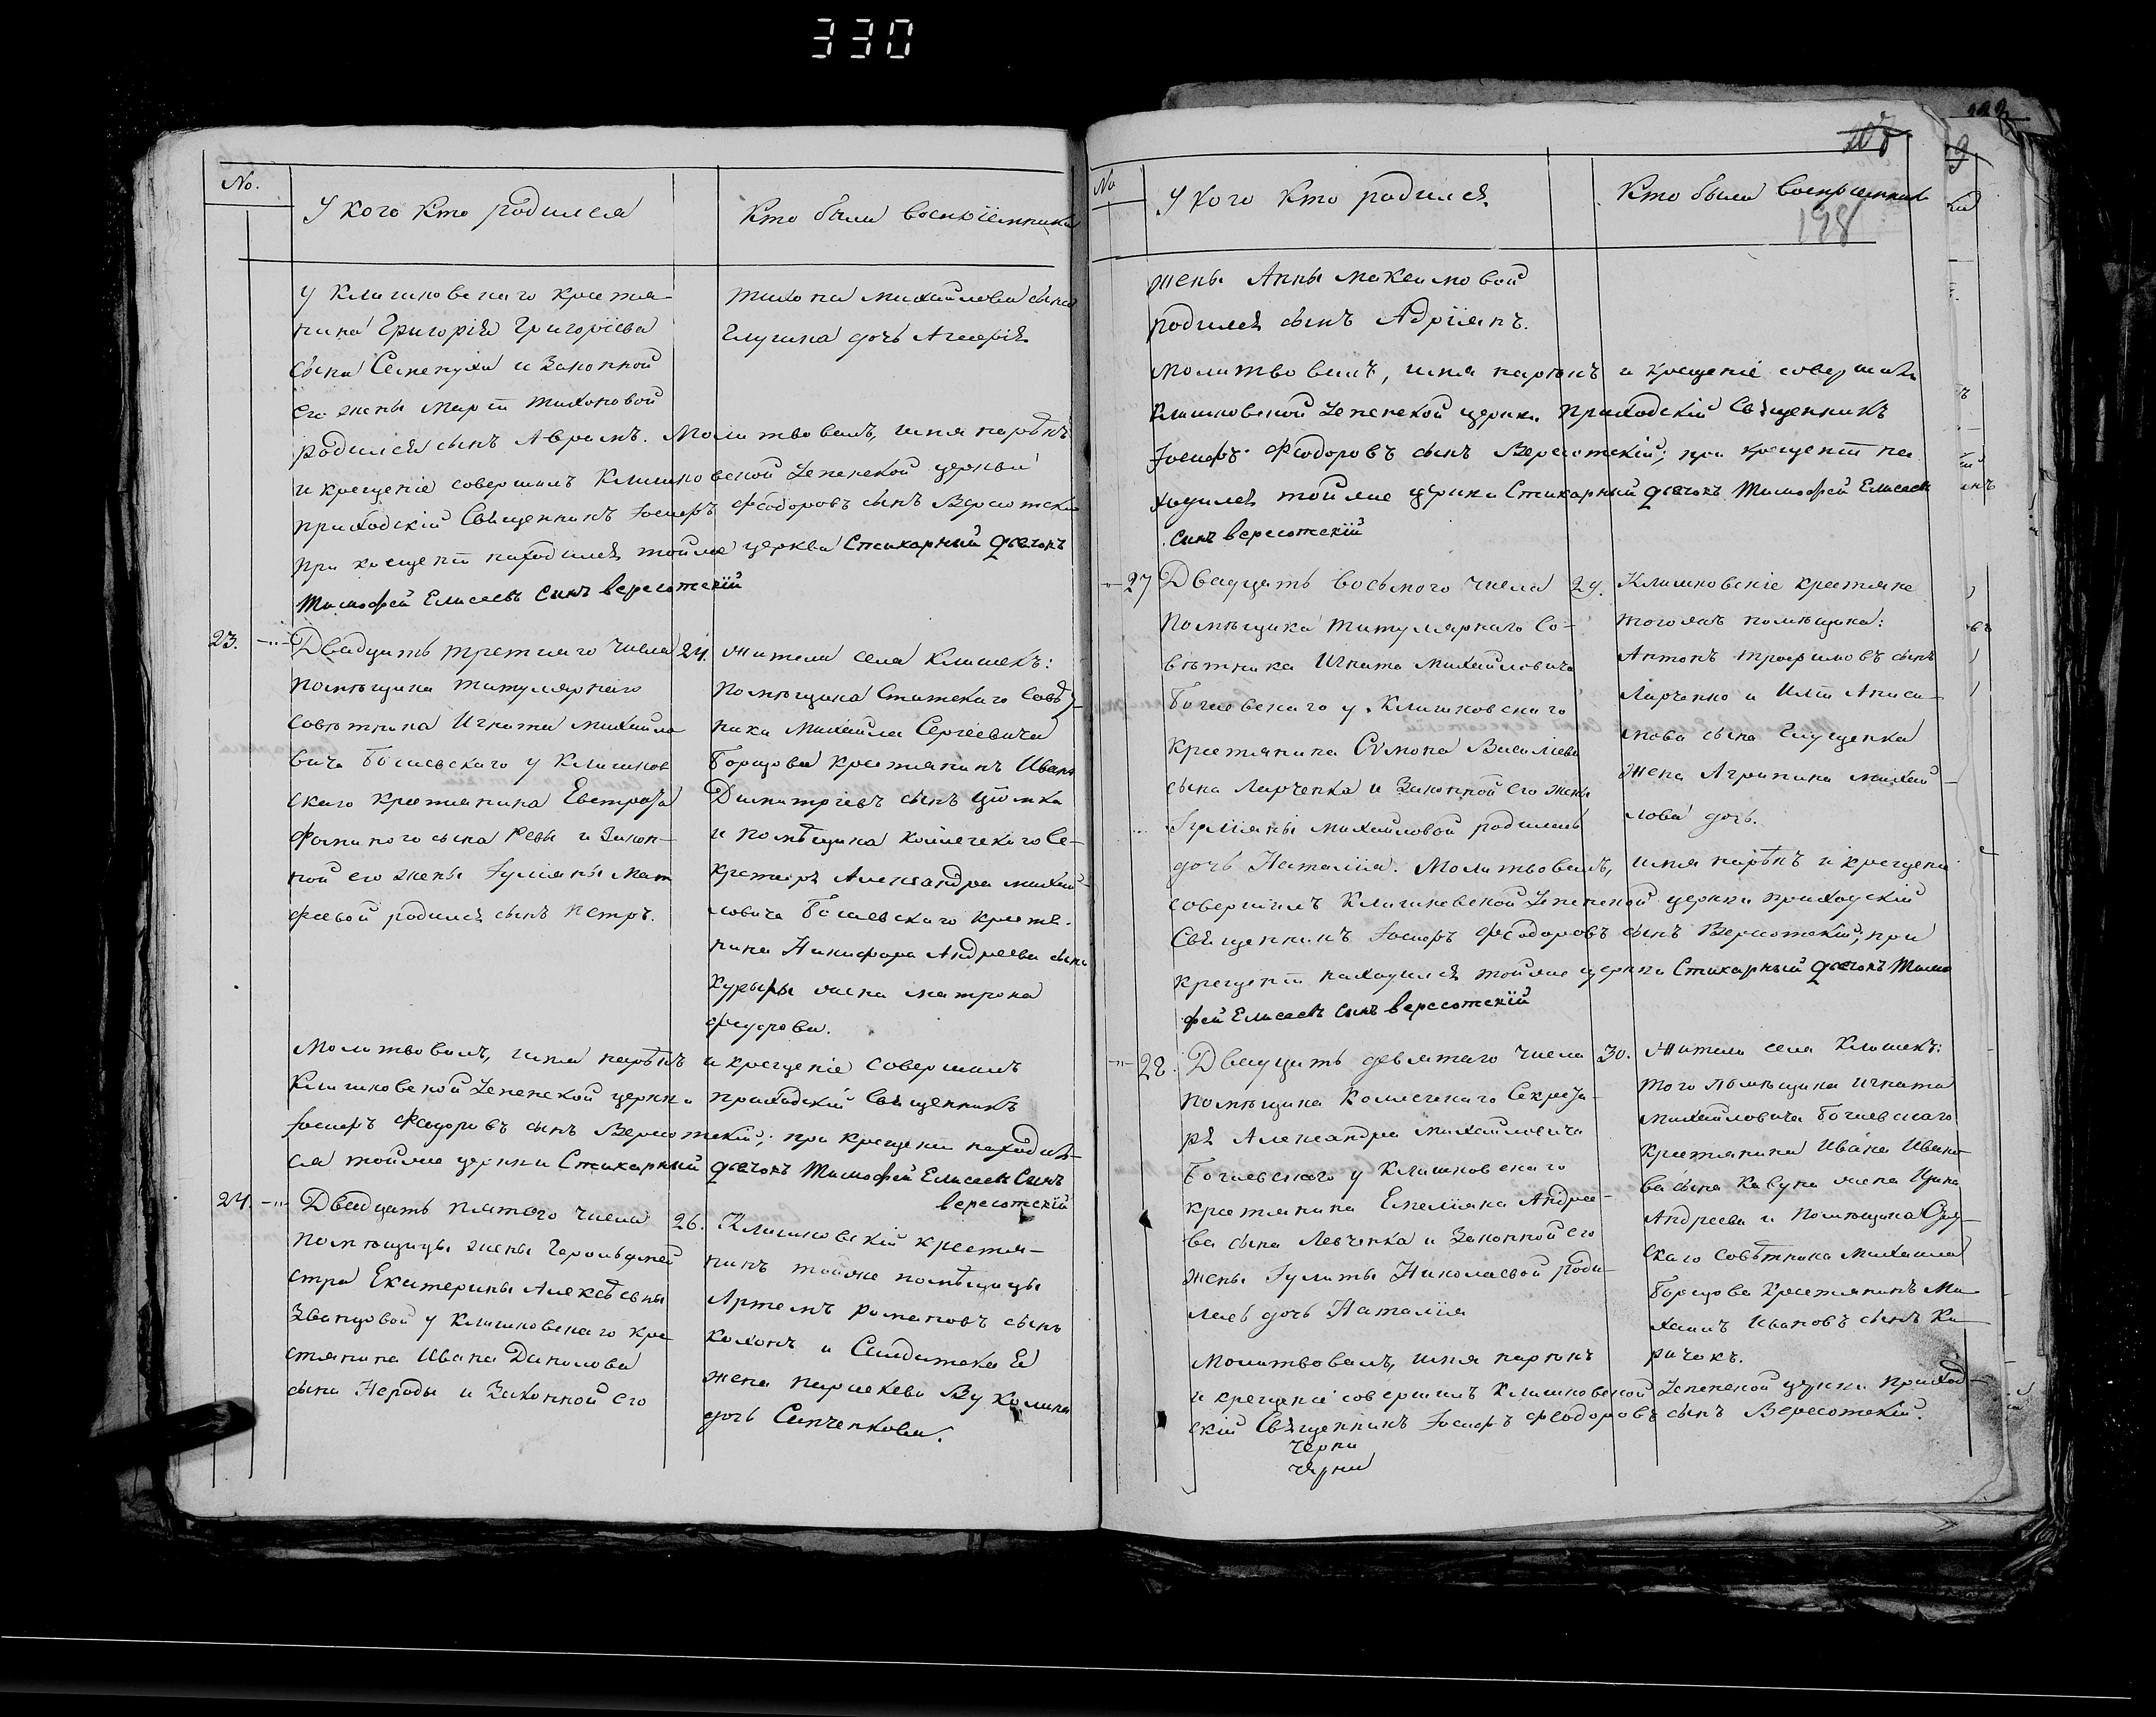 330
No.
У кого кто родился
Кто были восприемники
у Клишковскаго крестья-
нина Григорія Григоріева
сына Семенухи и законной
его жены Марѳы Тихоновой
родился сынъ Аврамъ. Молитвовалъ, имя нарѣкъ
и крещеніе совершилъ Клишковской Успенской церкви
приходскій Священникъ Іосифъ Феодоровъ сынъ Вересотскій
при крещеніи находился тойже церкви Стихарный дьячокъ
Тимофей Елисеевъ сынъ Вересотскій
Тихона Михайлова сына
Глущка дочь
23.
Двадцать третяго числа
24.
помѣщика титулярнаго
совѣтника Игната Михайло
вича Богаевскаго у Клишков
скаго крестьянина Евстрата
Фомина сына Ревы и закон-
ной его жены Іуліяны Мат
феевой родился сынъ Петръ.
Жители села Клишекъ:
помѣщика Статскаго Совѣт
ника Михаила Сергѣевича
Борщова крестьянинъ Иванъ
Димитріевъ сынъ
и помѣщика Коллежскаго Се-
кретаря Александра Михай-
ловича Богаевскаго крестя-
нина Никифора Андреева сына
жена Матрона
Федорова.
Молитвовалъ, имя нарѣкъ и крещеніе совершилъ
Клишковской Успенской церкви приходскій Священникъ
Іосифъ Феодоровъ сынъ Вересотскій; при крещеніи находил-
ся тойже церкви Стихарный дьячокъ Тимофей Елисеевъ сынъ
Вересотскій
24.
Двадцать пятого числа
26.
помѣщицы жены
Екатерины Алексѣевны
Званцовой у Клишковскаго кре
стянина Ивана Данилова
сына Негоды и законной его
Клишковскій крестья-
нинъ тойже помѣщицы
Артемъ Романовъ сынъ
и Солдатска
жена Параскева
дочь Синченкова.
207
198
No
У кого кто родился
Кто были восприемники
жены Анны Максимовой
родился сынъ Адріянъ.
Молитвовалъ, имя нарѣкъ и крещеніе совершилъ
Клишковской Успенской церкви приходскій Священникъ
Іосифъ Феодоровъ сынъ Вересотскій; при крещеніи на
ходился тойже церкви Стихарный дьячокъ Тимофей Елисеевъ
сынъ Вересотскій
27
Двадцать восьмого числа
29.
помѣщика титулярнаго со-
вѣтника Игната Михайловича
Богаевскаго у Клишковскаго
крестянина Симона Василіева
сына Ларченка и законной его жены
Іуліяны Михайловой родилась
дочь Наталія. Молитвовалъ, имя нарѣкъ и крещеніе
совершилъ Клишковской Успенской церкви приходскій
Священникъ Іосифъ Феодоровъ сынъ Вересотскій; при
крещеніи находился тойже церкви Стихарный дьячокъ Тимо
фей Елисеевъ сынъ Вересотскій
Клишковскіе крестяне
тогожъ помѣщика:
Антонъ Трофимовъ сынъ
Ларченко и Иліи Аниси-
мова сына Глущенка
жена Агрипина Михай-
лова дочь.
28.
Двадцать девятаго числа
30.
помѣщика Коллежскаго Секрета-
ря Александра Михайловича
Богаевскаго у Клишковскаго
крестянина Емеліяна Андрее-
ва сына Левченка и законной его
жены Іулиты Николаевой роди-
лась дочь Наталія
Жители села Клишекъ:
того помѣщика Игната
Михайловича Богаевскаго
крестянина Ивана Ивано-
ва сына Кавуна жена Ирина
Андреева и помѣщика
скаго совѣтника Михаила
Борщова крестянинъ Ми-
хаилъ Ивановъ сынъ Ки-
ричокъ.
Молитвовалъ, имя нарѣкъ
и крещеніе совершилъ Клишковской Успенской церкви приход-
скій Священникъ Іосифъ Феодоровъ сынъ Вересотскій.